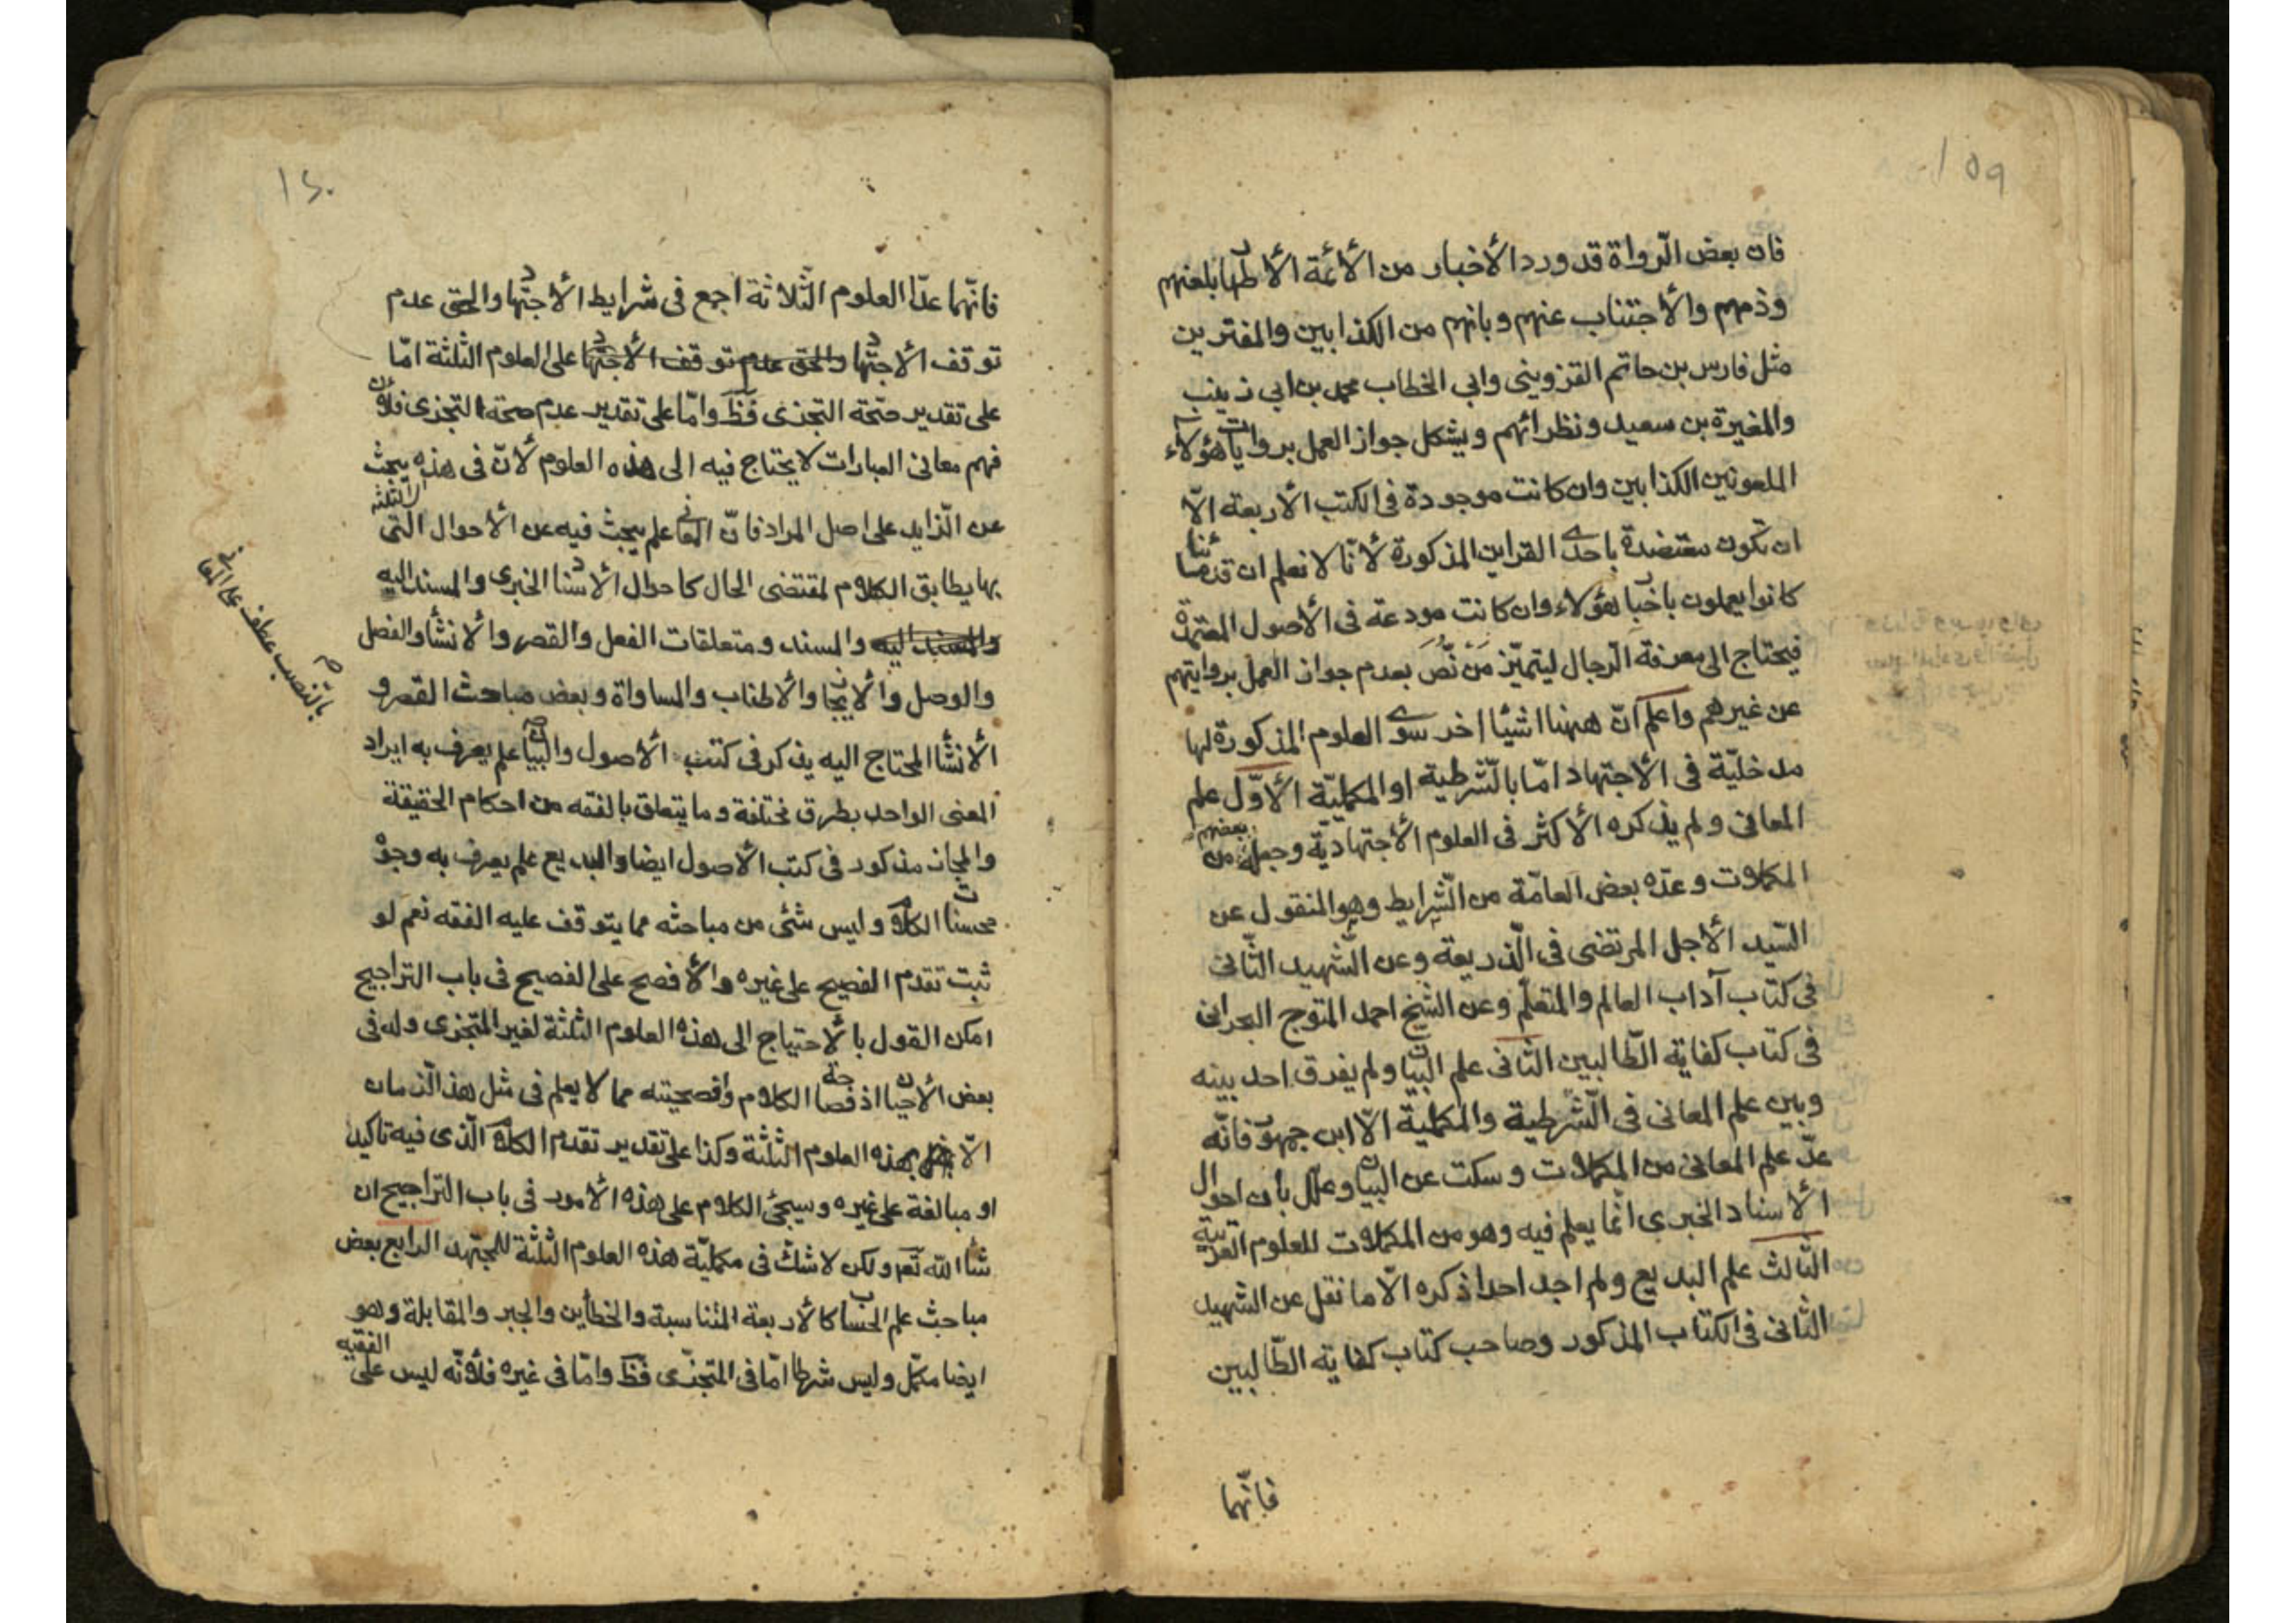 ١٥٩
فان بعض الرّواة قد ورد الأخبار من الأئمة الأطهار بلعنهم
وذمهم والأجتناب عنهم وبانهم من الكذابين والمفترين
مثل فارس بن حاتم القزويني وابي الخطاب محمد بن ابي زينب
والمغيرة بن سعيد ونظرائهم ويشكل جواز العمل بروايات هؤلاء
الملعونين الكذابين وان كانت موجودة في الكتب الأربعة الّا
ان تكون معتضدة باحدى القراين المذكورة لأنّا لا نعلم ان قدمائنا
كانوا يعملون باخبار هؤلاء وان كانت مودعة في الأصول المعتمدة
فيحتاج الى معرفة الرّجال ليتميّز مَنْ نُصَّ بعدم جواز العمل بروايتهم
عن غيرهم واعلم انّ ههنا اشئا اخر سوى العلوم المذكورة لها
مدخليّة في الأجتهاد امّا بالشّرطية او المكمليّة الأوّل علم
المعاني ولم يذكره الأكثر في العلوم الأجتهاديّة وجعله بعضهم من
المكملات وعدّه بعض العامّة من الشّرايط وهو المنقول عن
السّيد الأجل المرتضى في الّذريعة وعن الشّهيد الثّاني
في كتاب آداب العالم والمتعلّم وعن الشّيخ احمد المتوج البحراني
في كتاب كفاية الطّالبين الثّاني علم البيان ولم يفرق احد بينه
وبين علم المعاني في الشّرطية والمكملية الّا ابن جمهور فانّه
عدّ علم المعاني من المكملات وسكت عن البيان وعلّل بان احوال
الأسناد الخبرى انّما يعلم فيه وهو من المكملات للعلوم العربية
الثّالث علم البديع ولم اجد احدا ذكره الّا ما نقل عن الشهيد
الثّاني في الكتاب المذكور وصاحب كتاب كفاية الطّالبين
فانّهما
١٦٠
فانّهما عدّا العلوم الثّلاثة اجمع في شرايط الأجتهاد والحق عدم
توقف الأجتهاد والحق عدم توقف الأجتهاد على العلوم الثلثة امّا
على تقدير صحّة التجزى فظ وامّا على تقدير عدم صحة التجزى فلأن
فهم معاني العبارات لا يحتاج فيه الى هذه العلوم لأنّ في هذه الثلثة يبحث
عن الزّايد على اصل المراد فانّ المعاني علم يبحث فيه عن الأحوال التي
بها يطابق الكلام لمقتضى الحال كاحوال الأسناد الخبرى والمسند اليه
والمسند اليه والمسند ومتعلقات الفعل والقصر والأنشأ والفصل
والوصل والأيجاز والأطناب والمساواة وبعض مباحث القصر و
الأنشأ المحتاج اليه يذكر في كتب الأصول والبيان علم يعرف به ايراد
المعنى الواحد بطرق مختلفة وما يتعلق بالفقه من احكام الحقيقة
والمجاز مذكور في كتب الأصول ايضا والبديع علم يعرف به وجوه
محسنات الكلام وليس شئ من مباحثه مما يتوقف عليه الفقه نعم لو
ثبت تقدم الفصيح على غيره والأفصح على الفصيح في باب التراجيح
امكن القول بالأحتياج الى هذه العلوم الثلثة لغير المتجزى وله في
بعض الأحيان اذ فصاحة الكلام وافصحيته مما لا يعلم في مثل هذا الّزمان
الّا بهذه العلوم الثلثة وكذا على تقدير تقدم الكلام الّذى فيه تاكيد
او مبالغة على غيره وسيجئ الكلام على هذه الأمور في باب التراجيح ان
شأ الله تعم ولكن لا شكّ في مكمليّة هذه العلوم الثلثة للمجتهد الرابع بعض
مباحث علم الحساب كالأربعة المتناسبة والخطأين والجبر والمقابلة وهو
ايضا مكمّل وليس شرطا امّا في المتجزّى فظ وامّا في غيره فلأنّه ليس على الفقيه
بالنصب عطف على المعاني